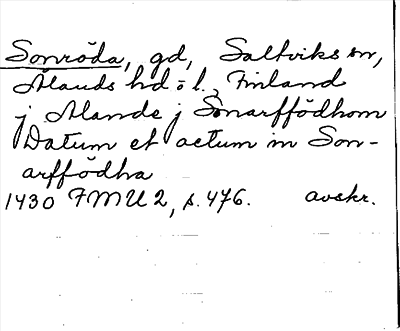 Sonröda, gd, Saltviks sn,
Ålands hd o l., Finland
j Alande j Sonarffödhom
Datum et actum in Son-
arffödha
1430 FMU 2, s. 476. avskr.